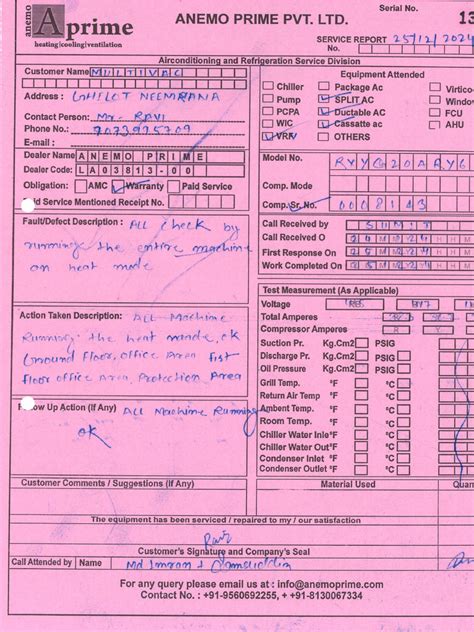 anemo
Aprime
heating|cooling|ventilation
ANEMO PRIME PVT. LTD.
Serial No.
13
SERVICE REPORT 25/12/2024
No.
Airconditioning and Refrigeration Service Division
Customer Name MULTIVAC
Address : GHILOT NEEMRANA
Contact Person: Mr- RAVI
Phone No.:
E-mail :
Dealer Name ANEMO PRIME
Dealer Code: LA03813-00
Obligation: AMC Warranty Paid Service
Paid Service Mentioned Receipt No.
Equipment Attended
Chiller Package Ac Virtico
Pump SPLIT AC Window
PCPA Ductable AC FCU
WIC Cassatte ac AHU
VRV OTHERS
Model No.
Comp. Mode
Comp. Sr. No. 0008143
Call Received by
Call Received O
First Response On
Work Completed On
Fault/Defect Description : ALL check by
running the entire machine
on heat mode
Action Taken Description: ALL Machine
Running the heat mode, ok
Ground floor, office Area fist
floor office Area, Protection Area
Follow Up Action (If Any) ALL Machine Running
ok
Test Measurement (As Applicable)
Voltage
Total Amperes
Compressor Amperes R Y
Suction Pr. Kg.Cm2 PSIG
Discharge Pr. Kg.Cm2 PSIG
Oil Pressure Kg.Cm2 PSIG
Grill Temp. °F °C
Return Air Temp °F °C
Ambent Temp. °F °C
Room Temp. °F °C
Chiller Water Inle°F °C
Chiller Water Out°F °C
Condenser Inlet °F °C
Condenser Outlet °F °C
Customer Comments / Suggestions (If Any)
Material Used Quan
The equipment has been serviced / repaired to my / our satisfaction
Ravi
Customer's Signature and Company's Seal
Call Attended by Name: Md Imran +
For any query please email us at : info@anemoprime.com
Contact No.: +91-9560692255, + +91-8130067334